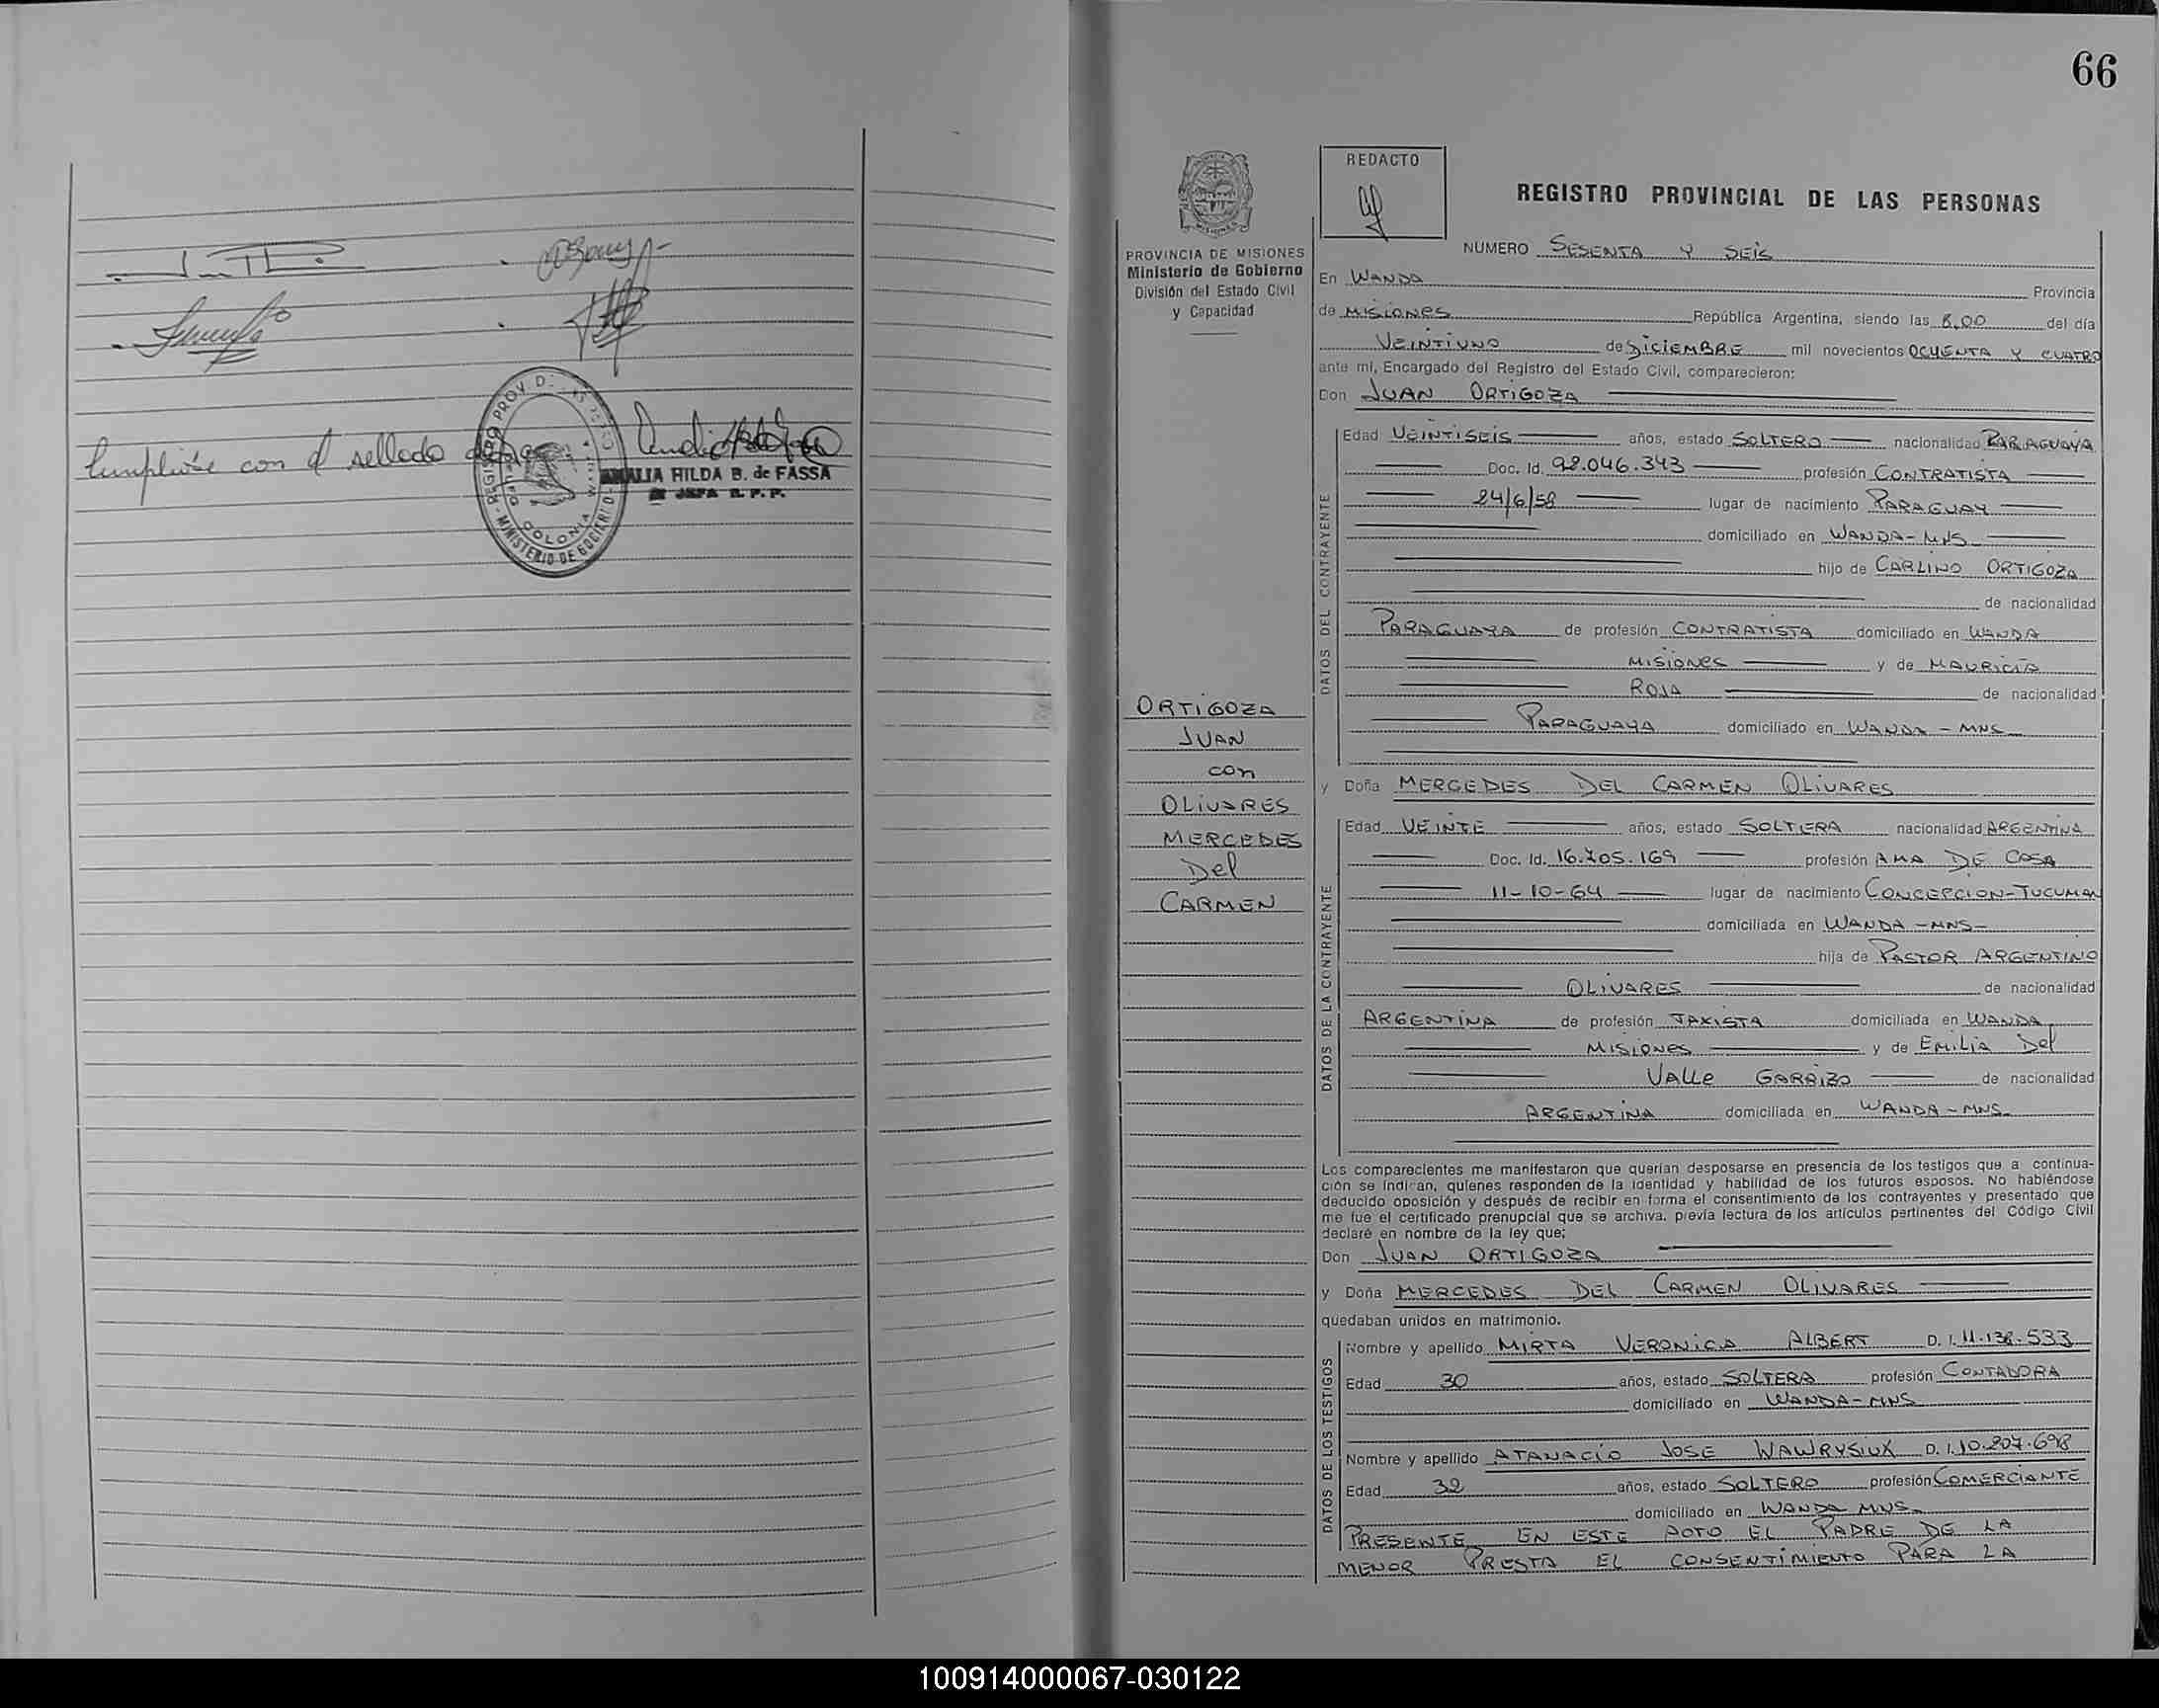 Cumpliose con el sellado
REGISTRO PROV. D
MINISTERIO DE GOBIERNO
COLONIA WANDA
AMALIA HILDA B. de FASSA
JEFA R. P. P.
66
REDACTO
REGISTRO PROVINCIAL DE LAS PERSONAS
PROVINCIA DE MISIONES
Ministerio de Gobierno
División del Estado Civil
y Capacidad
ORTIGOZA
JUAN
con
OLIVARES
MERCEDES
Del
CARMEN
NUMERO SESENTA Y SEIS
En WANDA Provincia
de MISIONES República Argentina, siendo las 8,00 del día
VEINTIUNO de DICIEMBRE mil novecientos OCHENTA Y CUATRO
ante mí, Encargado del Registro del Estado Civil, comparecieron:
Don JUAN ORTIGOZA
DATOS DEL CONTRAYENTE
Edad VEINTISEIS años, estado SOLTERO nacionalidad PARAGUAYA
Doc. Id. 92.046.343 profesión CONTRATISTA
24/6/58 lugar de nacimiento PARAGUAY
domiciliado en WANDA-MNS
hijo de CARLINO ORTIGOZA
de nacionalidad
PARAGUAYA de profesión CONTRATISTA domiciliado en WANDA
MISIONES y de MAURICIA
ROJA de nacionalidad
PARAGUAYA domiciliado en WANDA - MNS
y Doña MERCEDES DEL CARMEN OLIVARES
DATOS DE LA CONTRAYENTE
Edad VEINTE años, estado SOLTERA nacionalidad ARGENTINA
Doc. Id. 16.705.169 profesión AMA DE CASA
11-10-64 lugar de nacimiento CONCEPCION-TUCUMAN
domiciliada en WANDA-MNS-
hija de PASTOR ARGENTINO
OLIVARES de nacionalidad
ARGENTINA de profesión TAXISTA domiciliada en WANDA
MISIONES y de EMILIA Del
VALLE GARRIZO de nacionalidad
ARGENTINA domiciliada en WANDA-MNS-
Los comparecientes me manifestaron que querían desposarse en presencia de los testigos que a continua-
ción se indican, quienes responden de la identidad y habilidad de los futuros esposos. No habiéndose
deducido oposición y después de recibir en forma el consentimiento de los contrayentes y presentado que
me fue el certificado prenupcial que se archiva, previa lectura de los artículos pertinentes del Código Civil
declaré en nombre de la ley que:
Don JUAN ORTIGOZA
y Doña MERCEDES DEL CARMEN OLIVARES
quedaban unidos en matrimonio.
DATOS DE LOS TESTIGOS
Nombre y apellido MIRTA VERONICA ALBERT D. I. 11.138.533
Edad 30 años, estado SOLTERA profesión CONTADORA
domiciliado en WANDA-MNS
Nombre y apellido ATANACIO JOSE WAWRYSIUK D. I. 10.207.698
Edad 32 años, estado SOLTERO profesión COMERCIANTE
domiciliado en WANDA MNS
PRESENTE EN ESTE ACTO EL PADRE DE LA
MENOR PRESTA EL CONSENTIMIENTO PARA LA
100914000067-030122